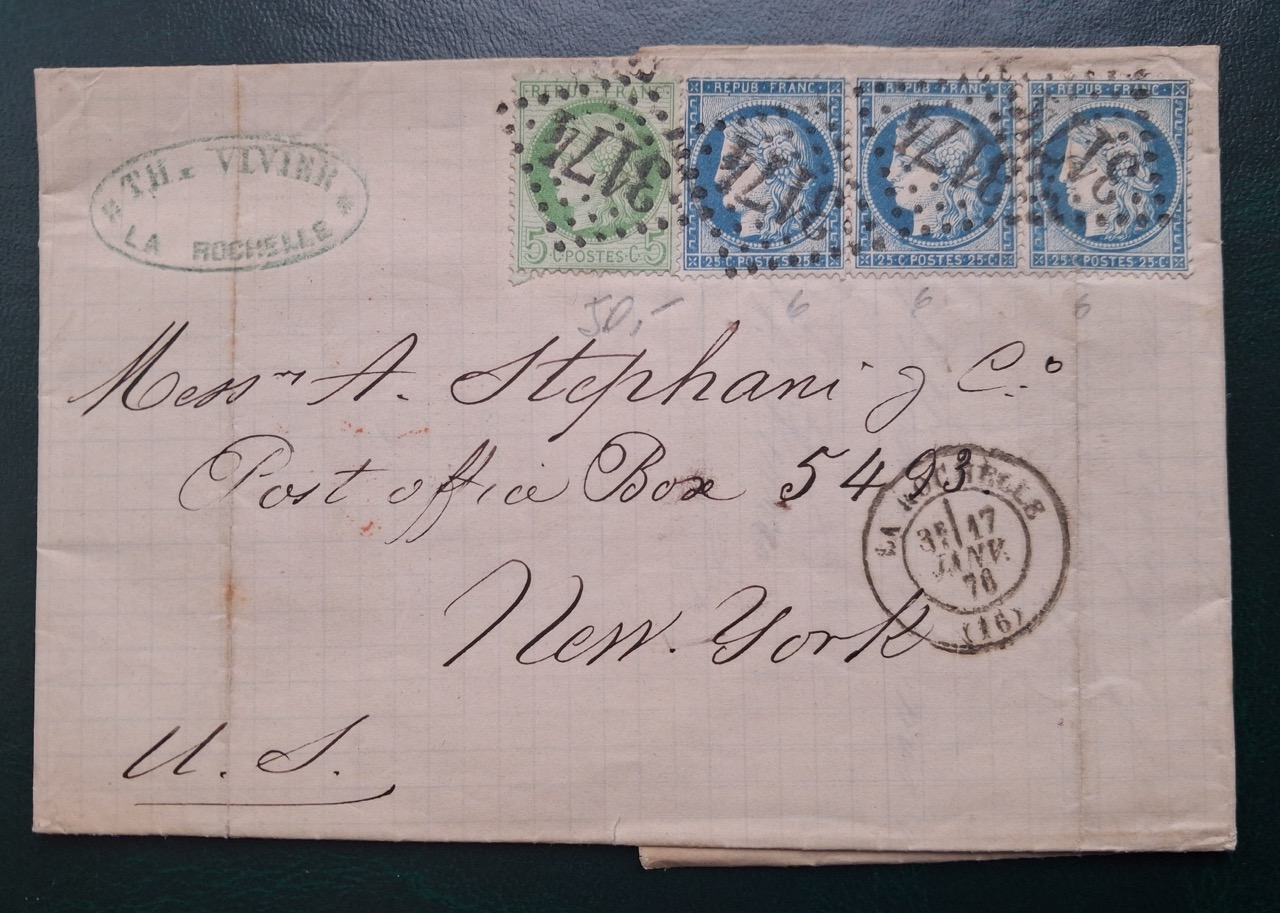 TH. VIVIER
LA ROCHELLE
REPUB. FRANC.
5 C. POSTES. C. 5
3174
REPUB. FRANC.
25. C. POSTES 25. C.
3174
REPUB. FRANC.
25. C. POSTES 25. C.
3174
REPUB. FRANC.
25. C. POSTES 25. C.
50,-
6
6
6
Messrs A. Stephani & C.o
Post office Box 5493.
New York
U. S.
LA ROCHELLE
3E 17
JANV.
76
(16)